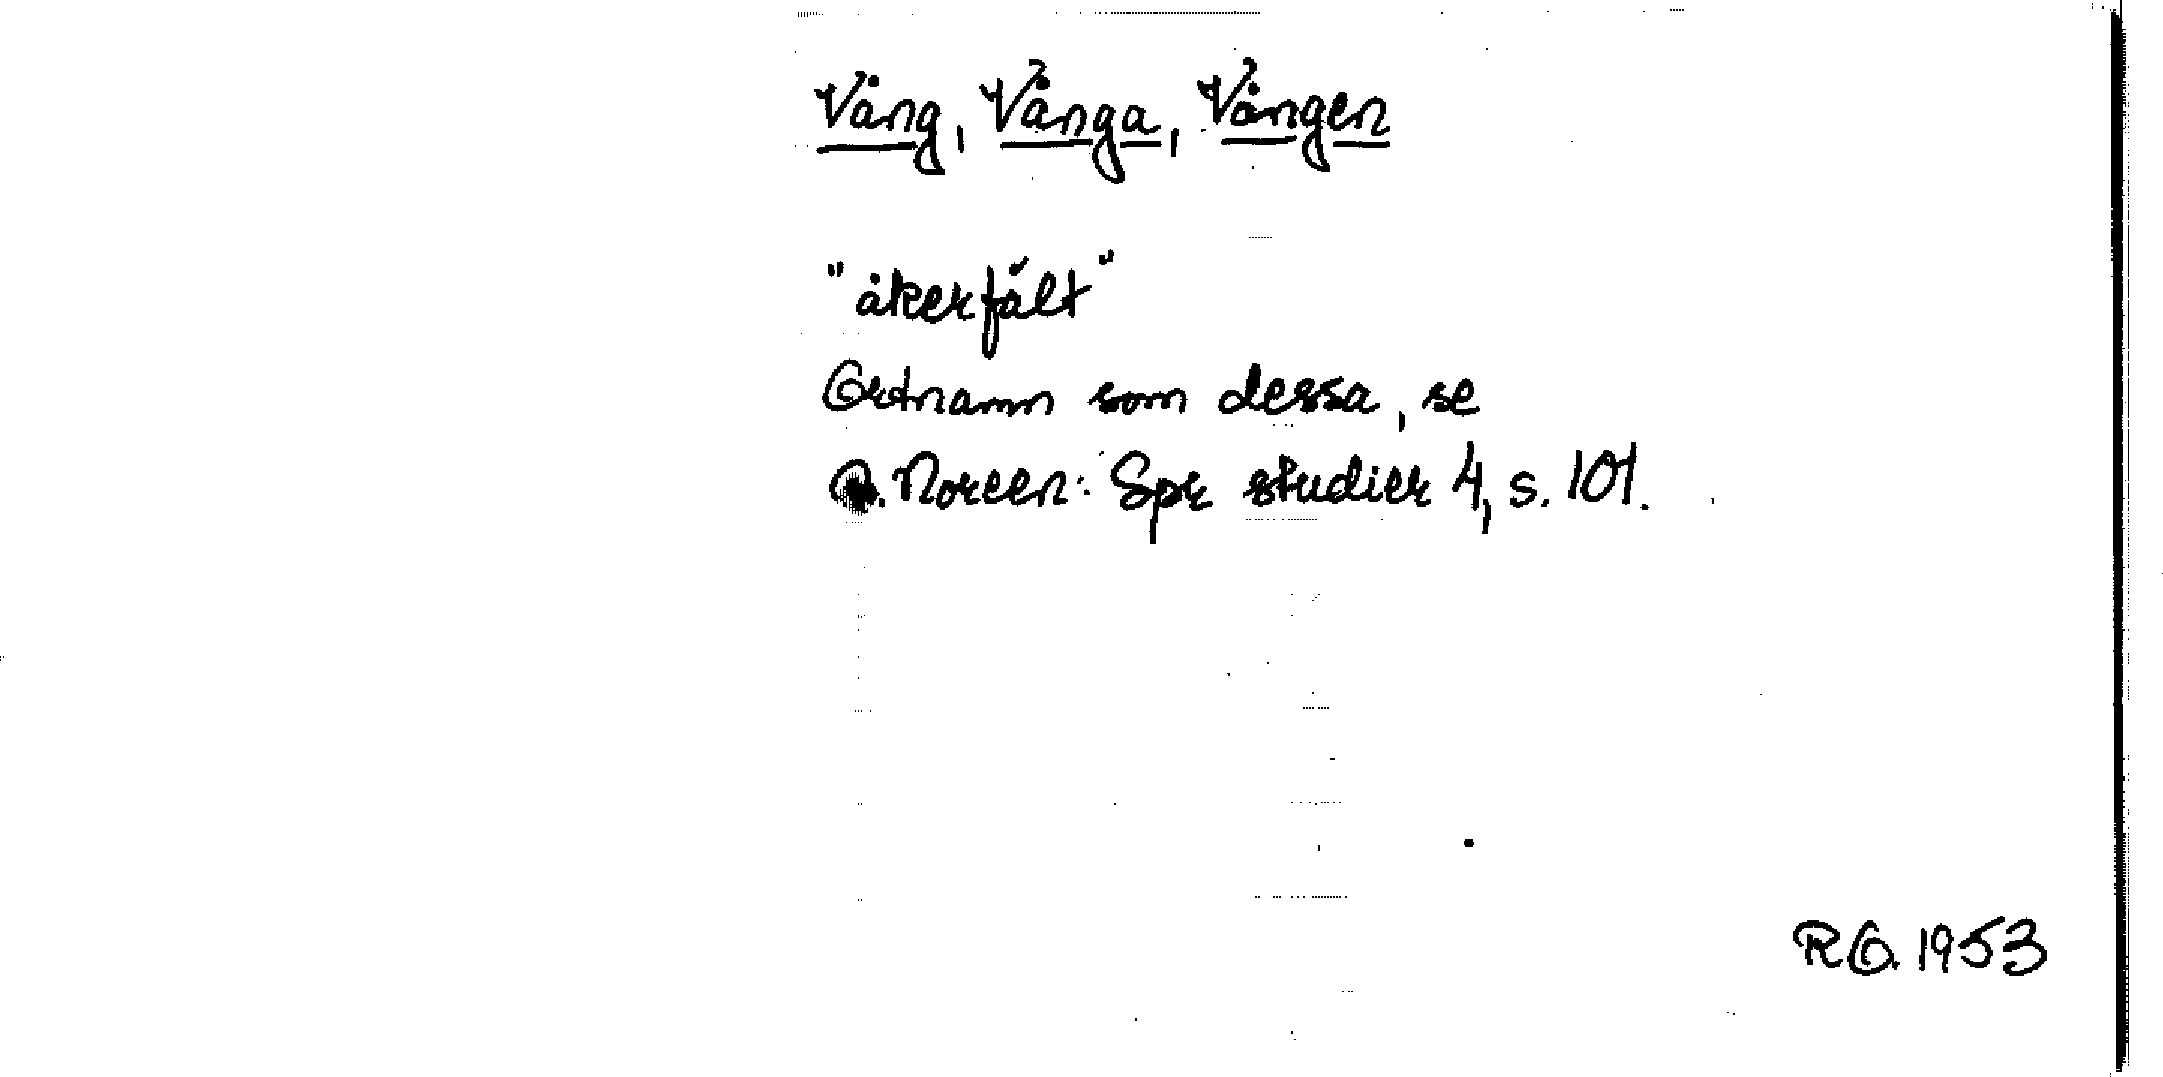 Vång, Vånga, Vången
"åkerfält"
Ortnamn som dessa, se
A. Noreen: Spr studier 4, s. 101.
RO. 1953